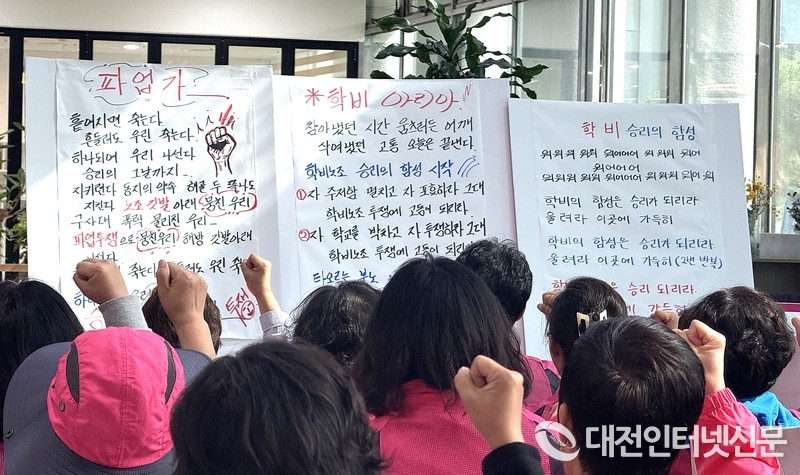 파업가
흩어지면 죽는다
흔들려도 우린 죽는다
하나되어 우리 나선다
승리의 그날까지
지키련다 동지의 약속 해골 두 쪽나도
지킨다 노조 깃발 아래 뭉친 우리
구사대 폭력 물리친 우리
파업투쟁으로 뭉친우리 해방 깃발아래
투쟁
※학비 아리아
참아냈던 시간 움츠리는 어깨
삭여냈던 고통 오늘은 끝낸다.
학비노조 승리의 함성 시작
①자 주저앉 떨치고 자 포효하라 그대
학비노조 투쟁에 고동이 되리라.
②자 학교를 박차고 자 투쟁하라 그대
학비노조 투쟁에 고동이 되리라
타오르는 분노
학비 승리의 함성
워워워 워 워어어어 워워워 워어
워어어어 어
워워워 워 워어어어 워 워워 워어
학비의 함성은 승리가 되리라
울려라 이곳에 가득히
학비의 함성은 승리가 되리라
울려라 이곳에 가득히 (2번 반복)
함성은 승리 되리라
가득히
대전인터넷신문